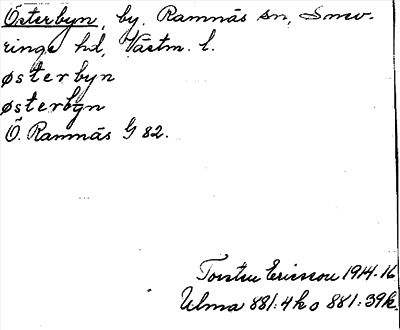 Österbyn, by, Ramnäs sn, Snev-
ringe hd, Västm. l.
østerbyn
østerbyn
Ö. Ramnäs G 82.
Torsten Ericsson 1914-16
Ulma 881:4 k o 881:39 k.